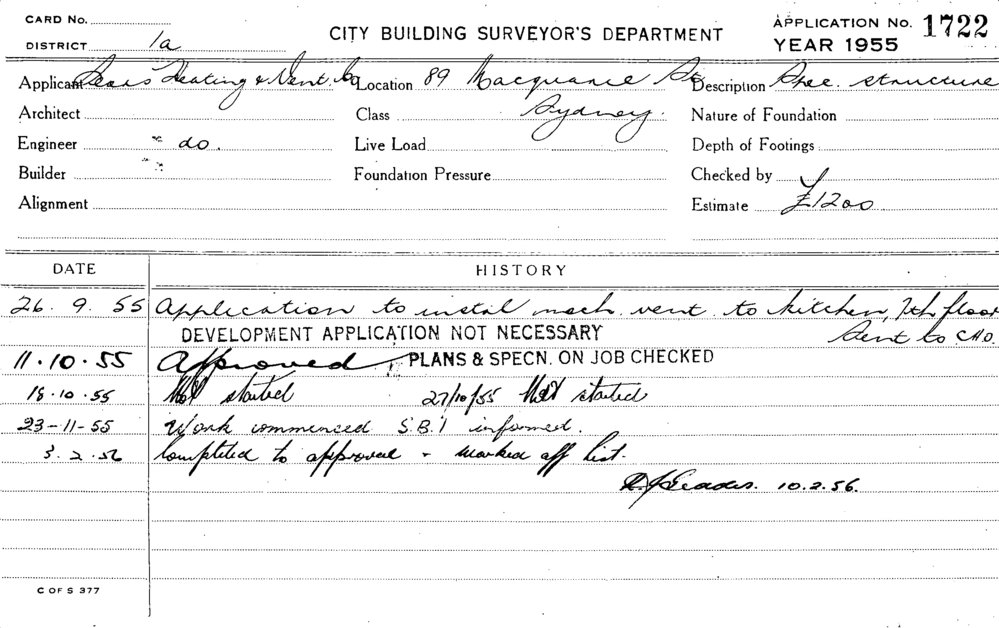 CARD No.
DISTRICT 1a
CITY BUILDING SURVEYOR'S DEPARTMENT
APPLICATION No. 1722
YEAR 1955
Applicant Heating & Vent. Co Location 89 Macquarie St Description Spec. structure
Architect Class Sydney. Nature of Foundation
Engineer " do. Live Load Depth of Footings
Builder " " Foundation Pressure Checked by
Alignment Estimate £1200
DATE HISTORY
26. 9. 55 Application to instal mech. vent. to kitchen, 7th floor
DEVELOPMENT APPLICATION NOT NECESSARY Sent to C.H.O.
11.10.55 Approved PLANS & SPECN. ON JOB CHECKED
18.10.55 Not started 27/10/55 Not started
23-11-55 Work commenced S.B.I informed.
3.2.56 Completed to approval - marked off list.
10.2.56.
C OF S 377